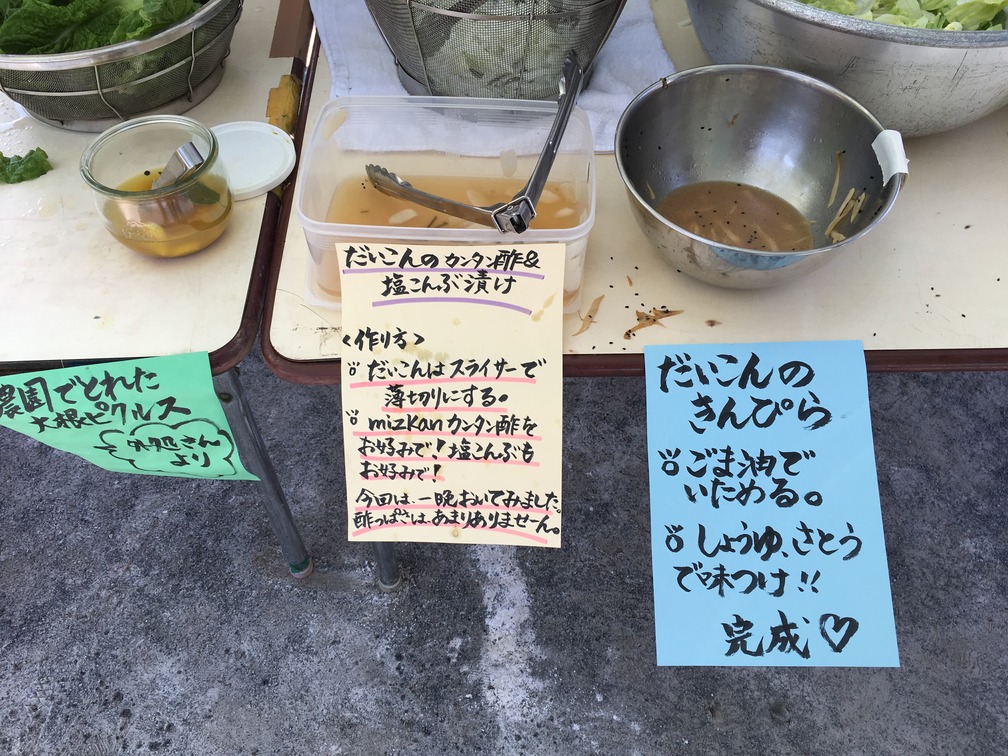 農園でとれた
大根ピクルス
さん
より
だいこんのカンタン酢&
塩こんぶ漬け
<作り方>
だいこんはスライサーで
薄切りにする。
mizkanカンタン酢を
お好みで!塩こんぶも
お好みで!
今回は、一晩おいてみました。
酢っぱさは、あまりありませーん。
だいこんの
きんぴら
ごま油で
いためる。
しょうゆ、さとう
で味つけ!!
完成♡